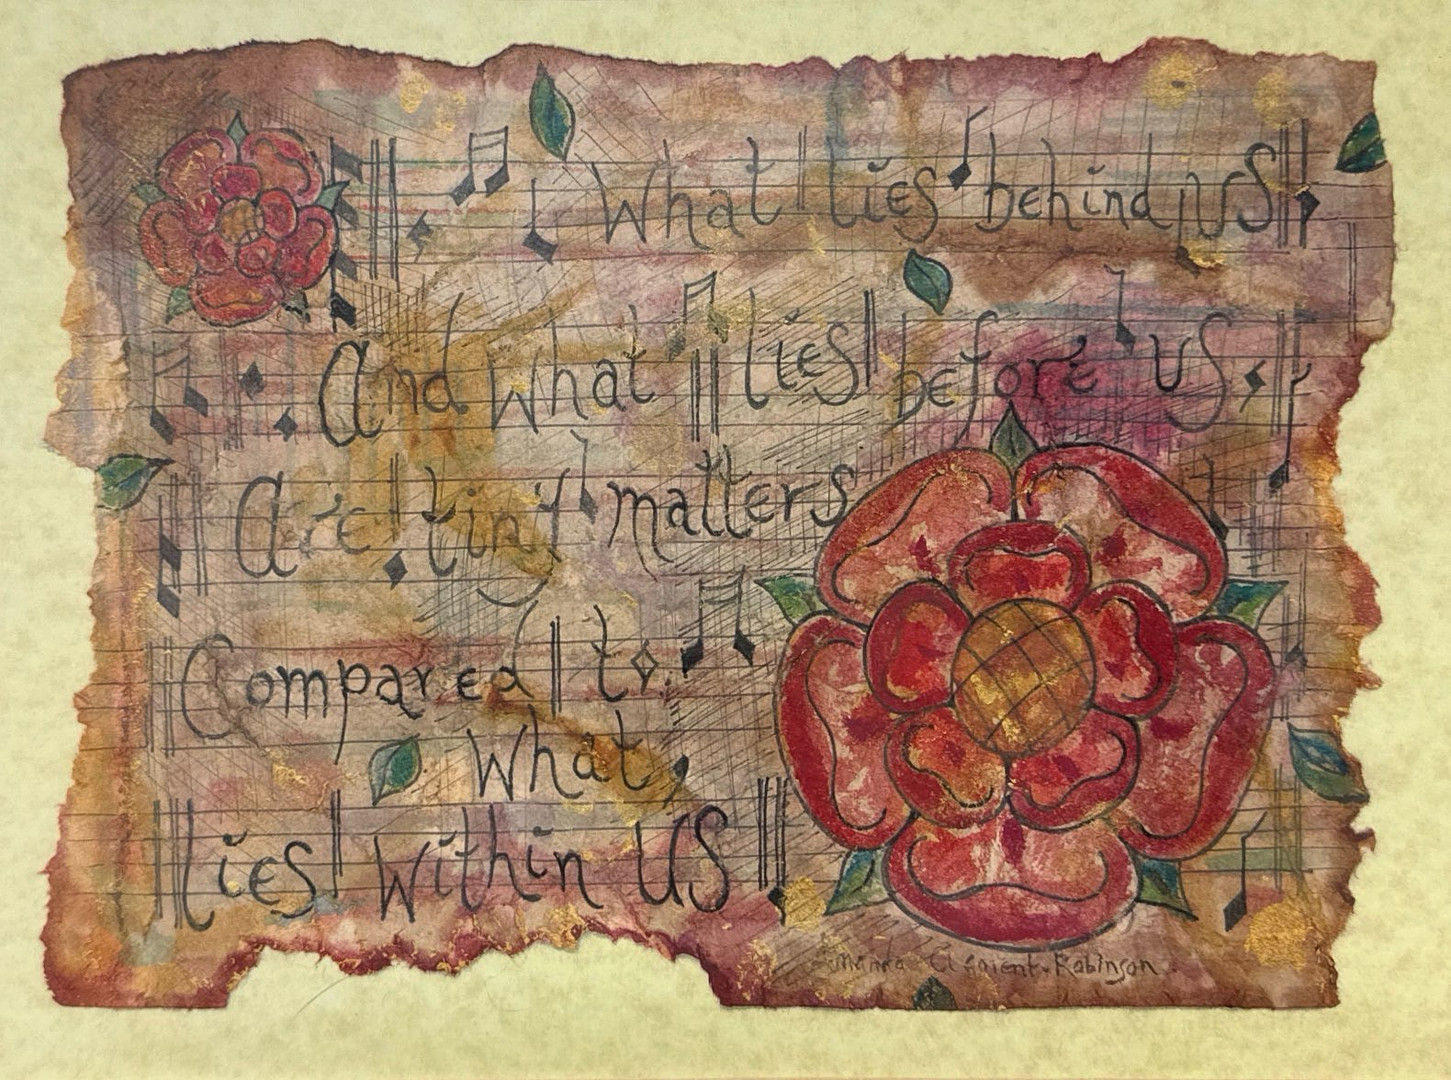 What lies behind us
And what lies before us
Are tiny matters
Compared to
what
lies within us
Clement-Robinson